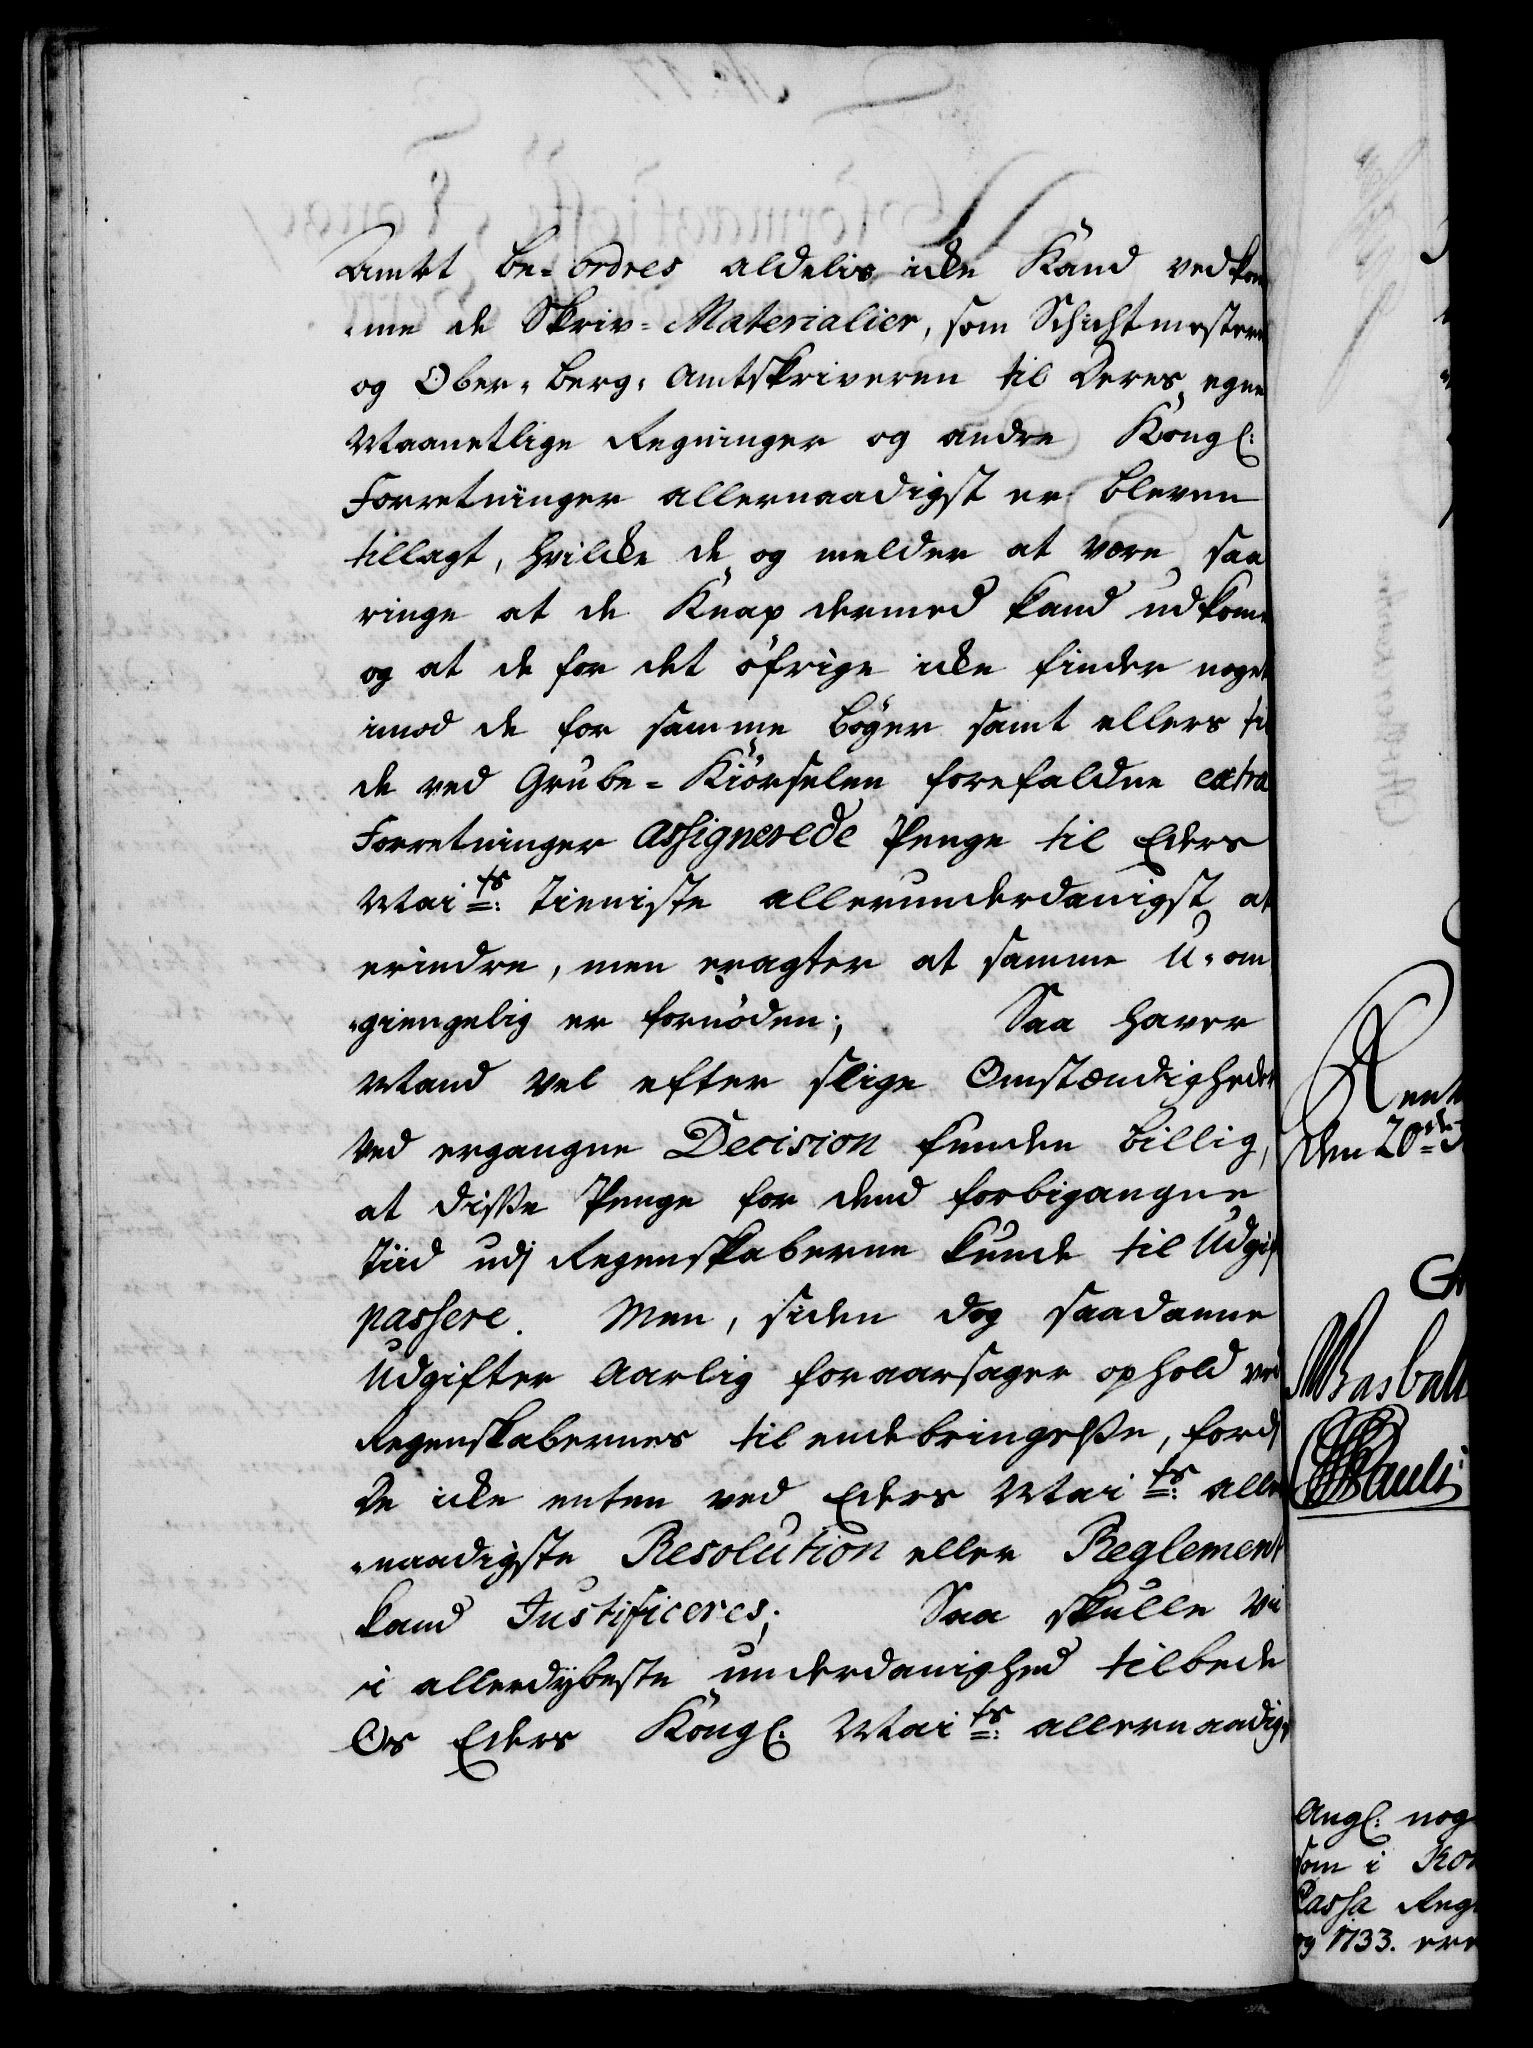 Amtet be-ordres aldelis icke Kand vedkom
-me de Skriv-Materialier, som Schichtmestern
og Ober-Berg-Amtskriveren til Deres egne
Maanetlige Regninger og andre Kongl:
Forretninger allernaadigst er bleven
tillagt, hvilcke de og melder at være saa
ringe at de Knap dermed kand udkom̄e
og at de for det øfrige icke finder noget
imod de for samme Bøger samt ellers til
de ved Grube-Kiørselen forefaldne extra
Forretninger assignerede Penge til Eders
Maits: Tieniste allerunderdanigst at
erindre, men eragter at samme U-om
-giengelig er fornøden; Saa haver
Mand vel efter slige Omstændigheder
ved ergangne Decision funden billig,
at disse Penge for dend forbigangne
Tiid udj Regenskaberne kunde til Udgift
passere. Men, siden dog saadanne
Udgifter Aarlig foraarsager ophold ved
Regenskabernes til endebringelse, fordj
De icke enten ved Eders Maits: aller
-naadigste Resolution eller Reglement
kand Justificeres; Saa skulle vii
i allerdybeste underdanighed tilbede
Os Eders Kongl: Maits: allernaadigst
Rent
den 20de
Pauli
Angl: nog
som i Kon
Cassa Reg
og 1733. ere